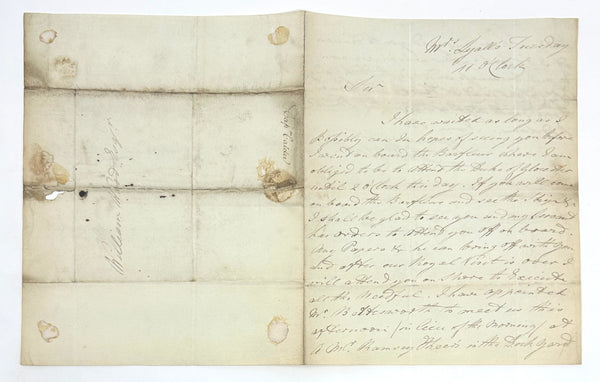 Mrs. Lyalls Tuesday
11 O'Clock
Sir
I have waited as long as I
Possibly can in hopes of seeing you before
I went on board the Barfleur where I am
obliged to be to attend the Duke of Gloucester
until 2 O'Clock this Day. If you will come
on board the Barfleur and see the Ship &c
I shall be glad to see you and my Servant
has orders to attend you off on board.
any Papers &c he can bring off with you
and after our Royal Visit is over I
will attend you on Shore to Execute
all the Needful. I have appointed
Mr. Butterworth to meet us this
afternoon (in lieu of the morning) at
a Mr. Ramsey in the Dock Yard
William Esqr.
Capt Calder